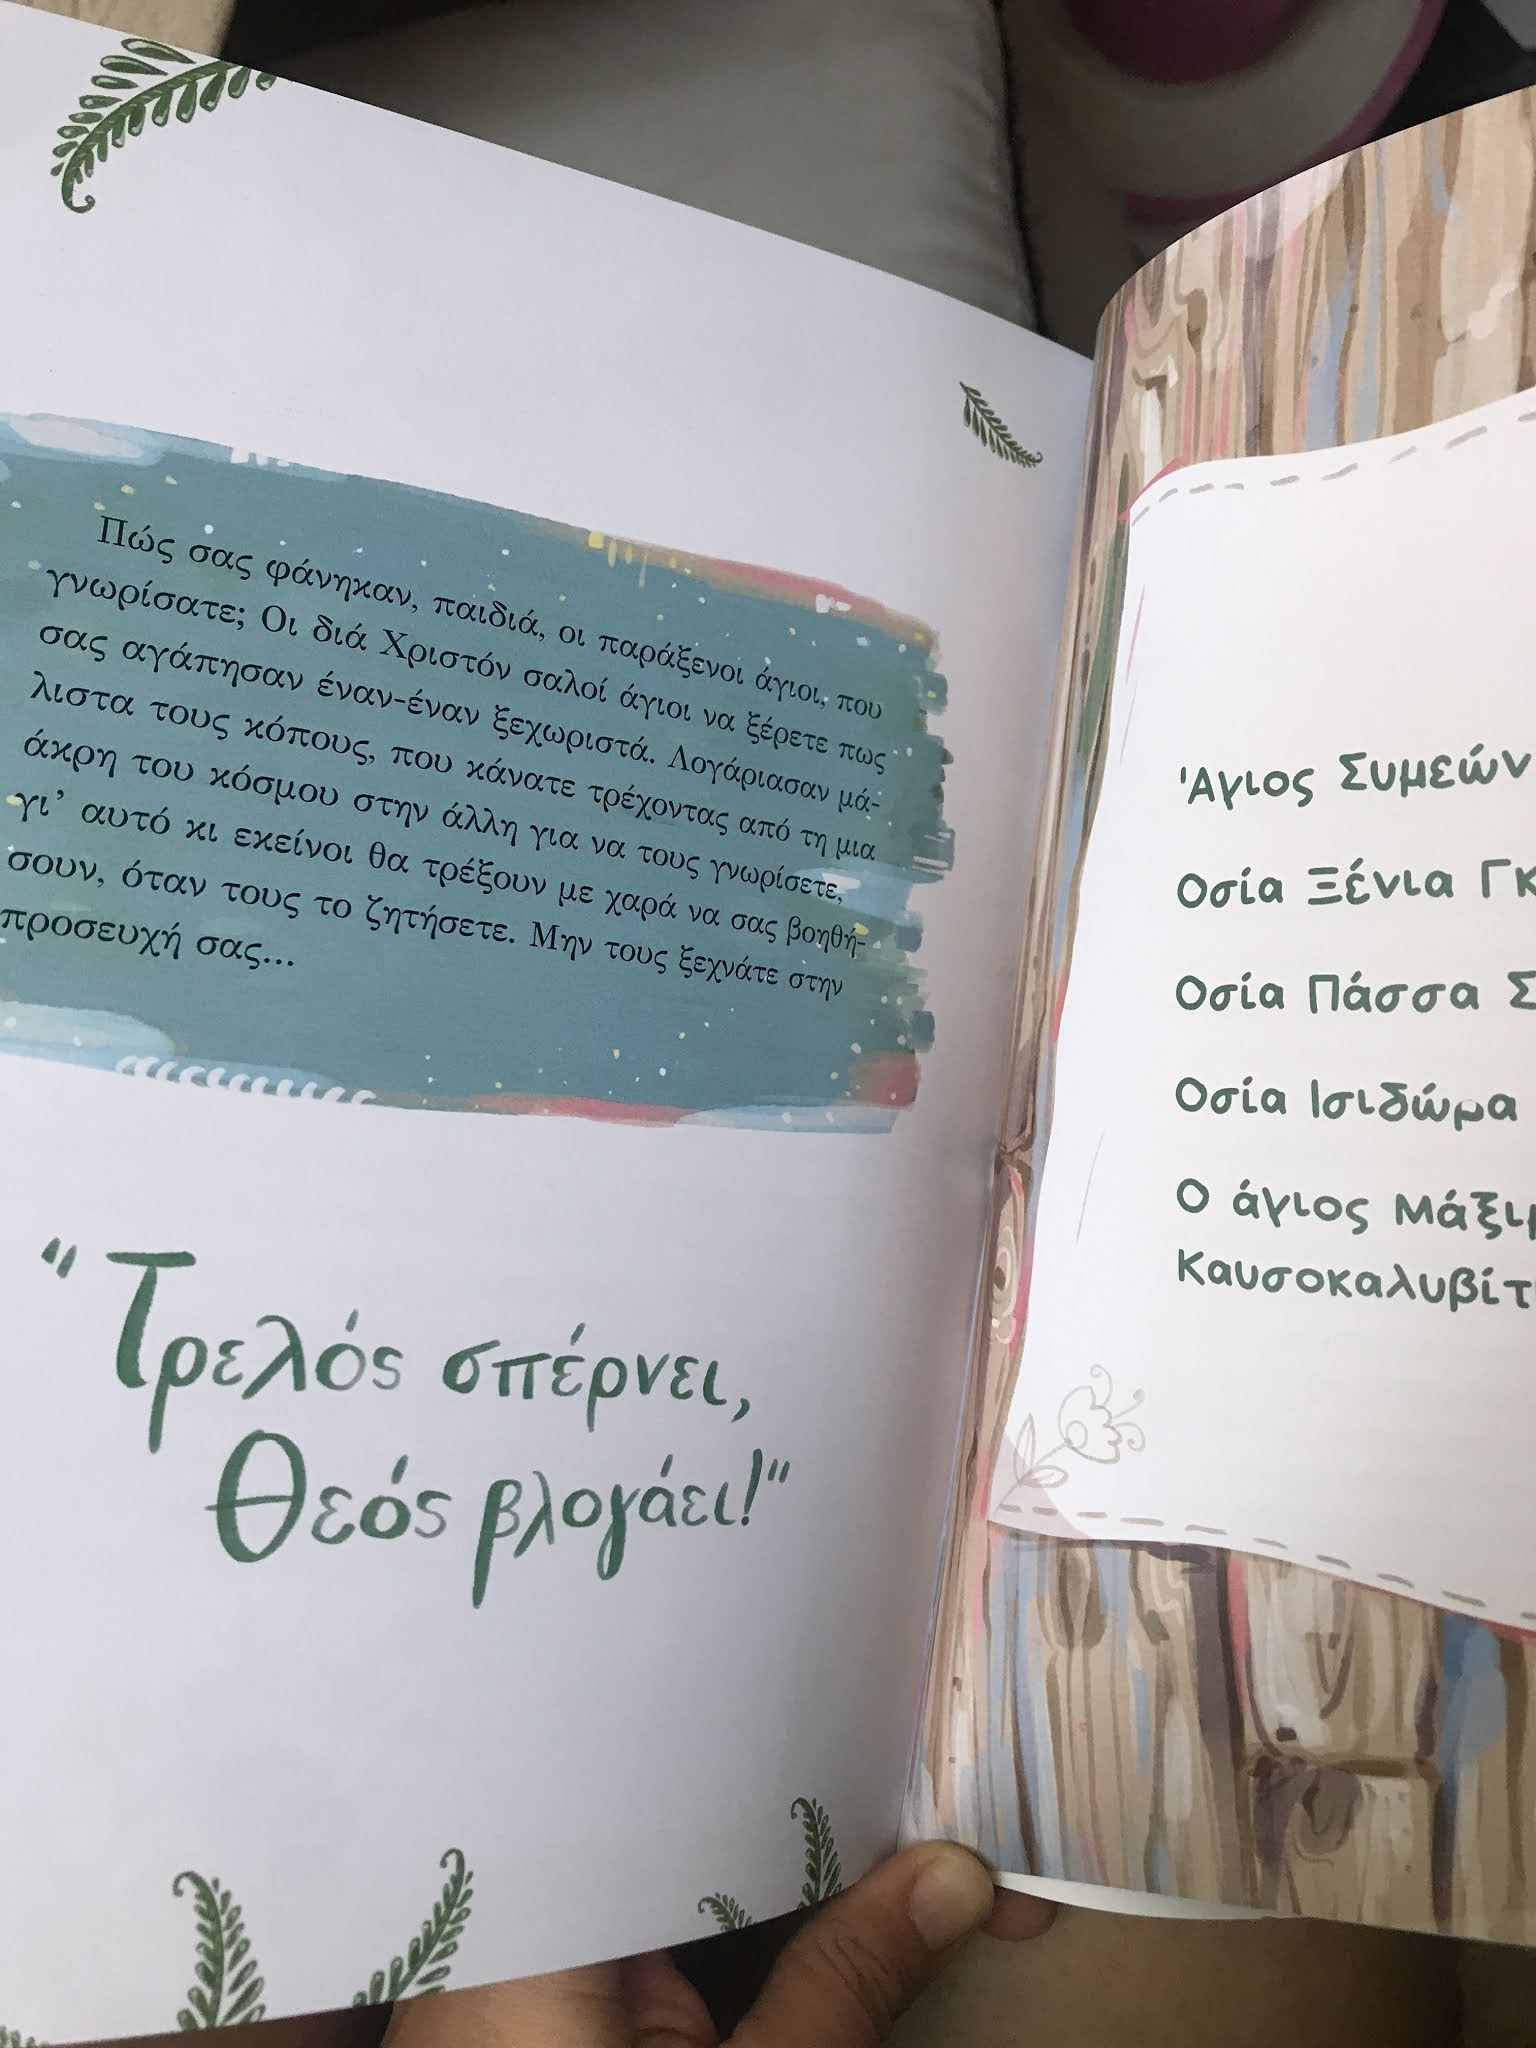 Πώς σας φάνηκαν, παιδιά, οι παράξενοι άγιοι, που
γνωρίσατε; Οι διά Χριστόν σαλοί άγιοι να ξέρετε πως
σας αγάπησαν έναν-έναν ξεχωριστά. Λογάριασαν μά-
λιστα τους κόπους, που κάνατε τρέχοντας από τη μια
άκρη του κόσμου στην άλλη για να τους γνωρίσετε,
γι’ αυτό κι εκείνοι θα τρέξουν με χαρά να σας βοηθή-
σουν, όταν τους το ζητήσετε. Μην τους ξεχνάτε στην
προσευχή σας...
"Τρελός σπέρνει,
Θεός βλογάει!"
Άγιος Συμεών
Οσία Ξένια
Οσία Πάσσα
Οσία Ισιδώρα
Ο άγιος